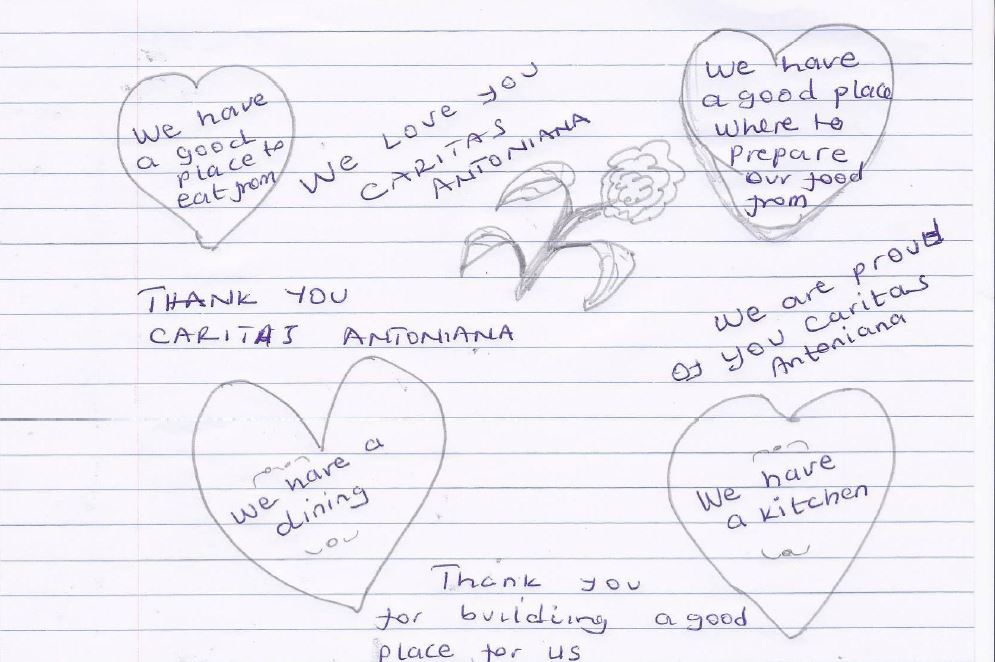 We have
a good
place to
eat from
We Love you
CARITAS
ANTONIANA
We have
a good place
where to
prepare
our food
from
THANK YOU
CARITAS ANTONIANA
We are proud
of you Caritas
Antoniana
We have a
dining
We have
a kitchen
Thank you
for building a good
place for us